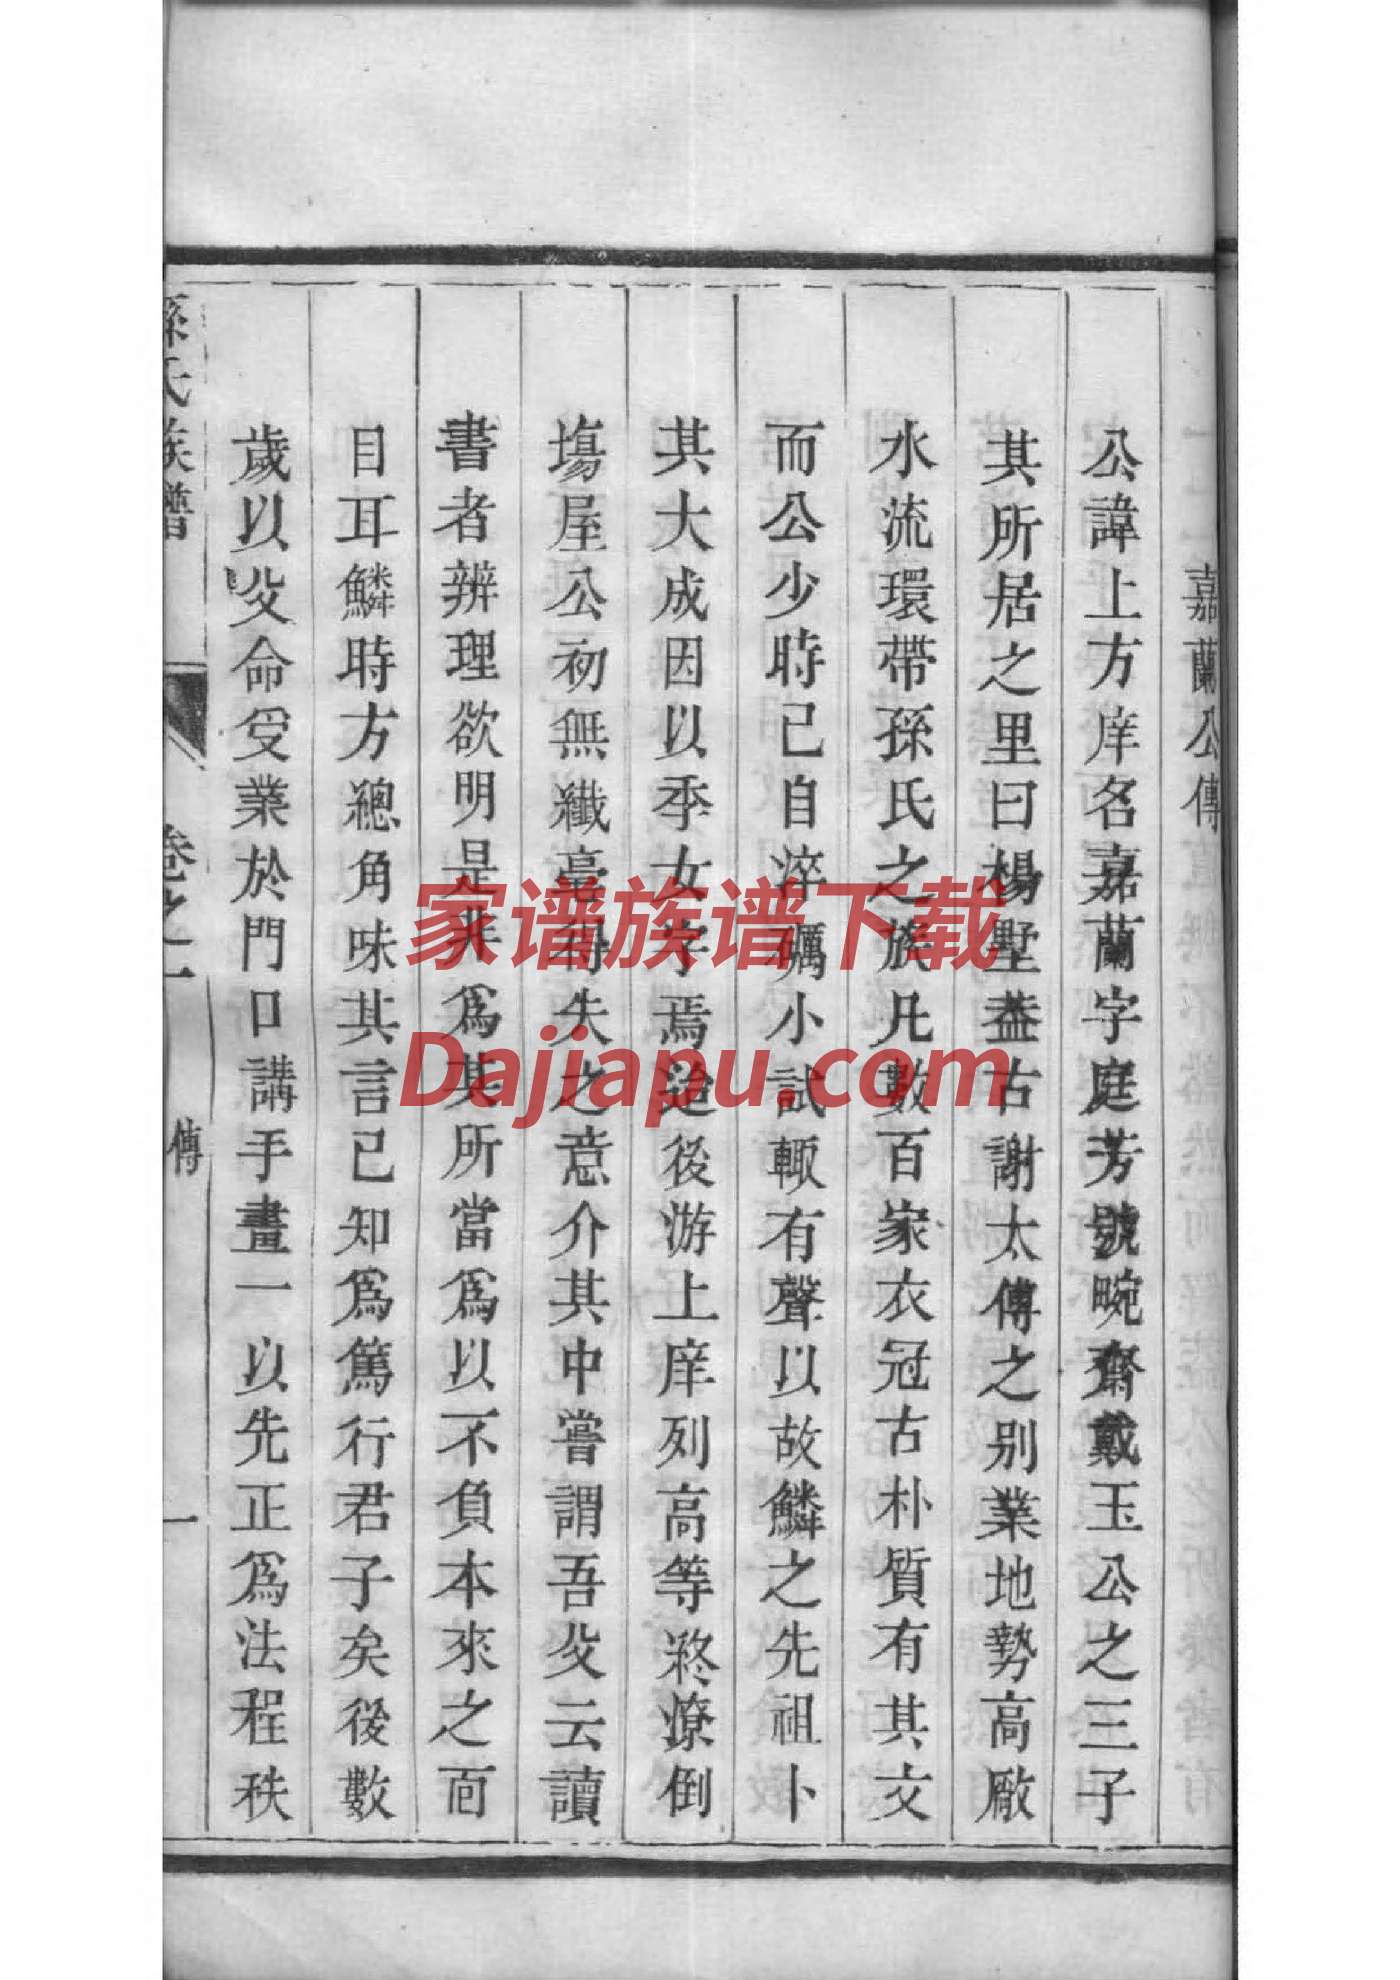 嘉蘭公傳
公諱上方庠名嘉蘭字庭芳號畹齋戴玉公之三子
其所居之里曰楊墅葢古謝太傅之别業地勢高厰
水流環帶孫氏之族凡數百家衣冠古朴質有其文
而公少時已自淬礪小試輙有聲以故鱗之先祖卜
其大成因以季女字焉迨後游上庠列高等終潦倒
塲屋公初無纖毫得失之意介其中嘗謂吾父云讀
書者辨理欲明是非為其所當為以不負本來之面
目耳鱗時方總角味其言已知為篤行君子矣後數
歲以父命受業於門口講手畫一以先正為法程秩
孫氏族譜
卷之一
傳
一
家谱族谱下载
Dajiapu.com